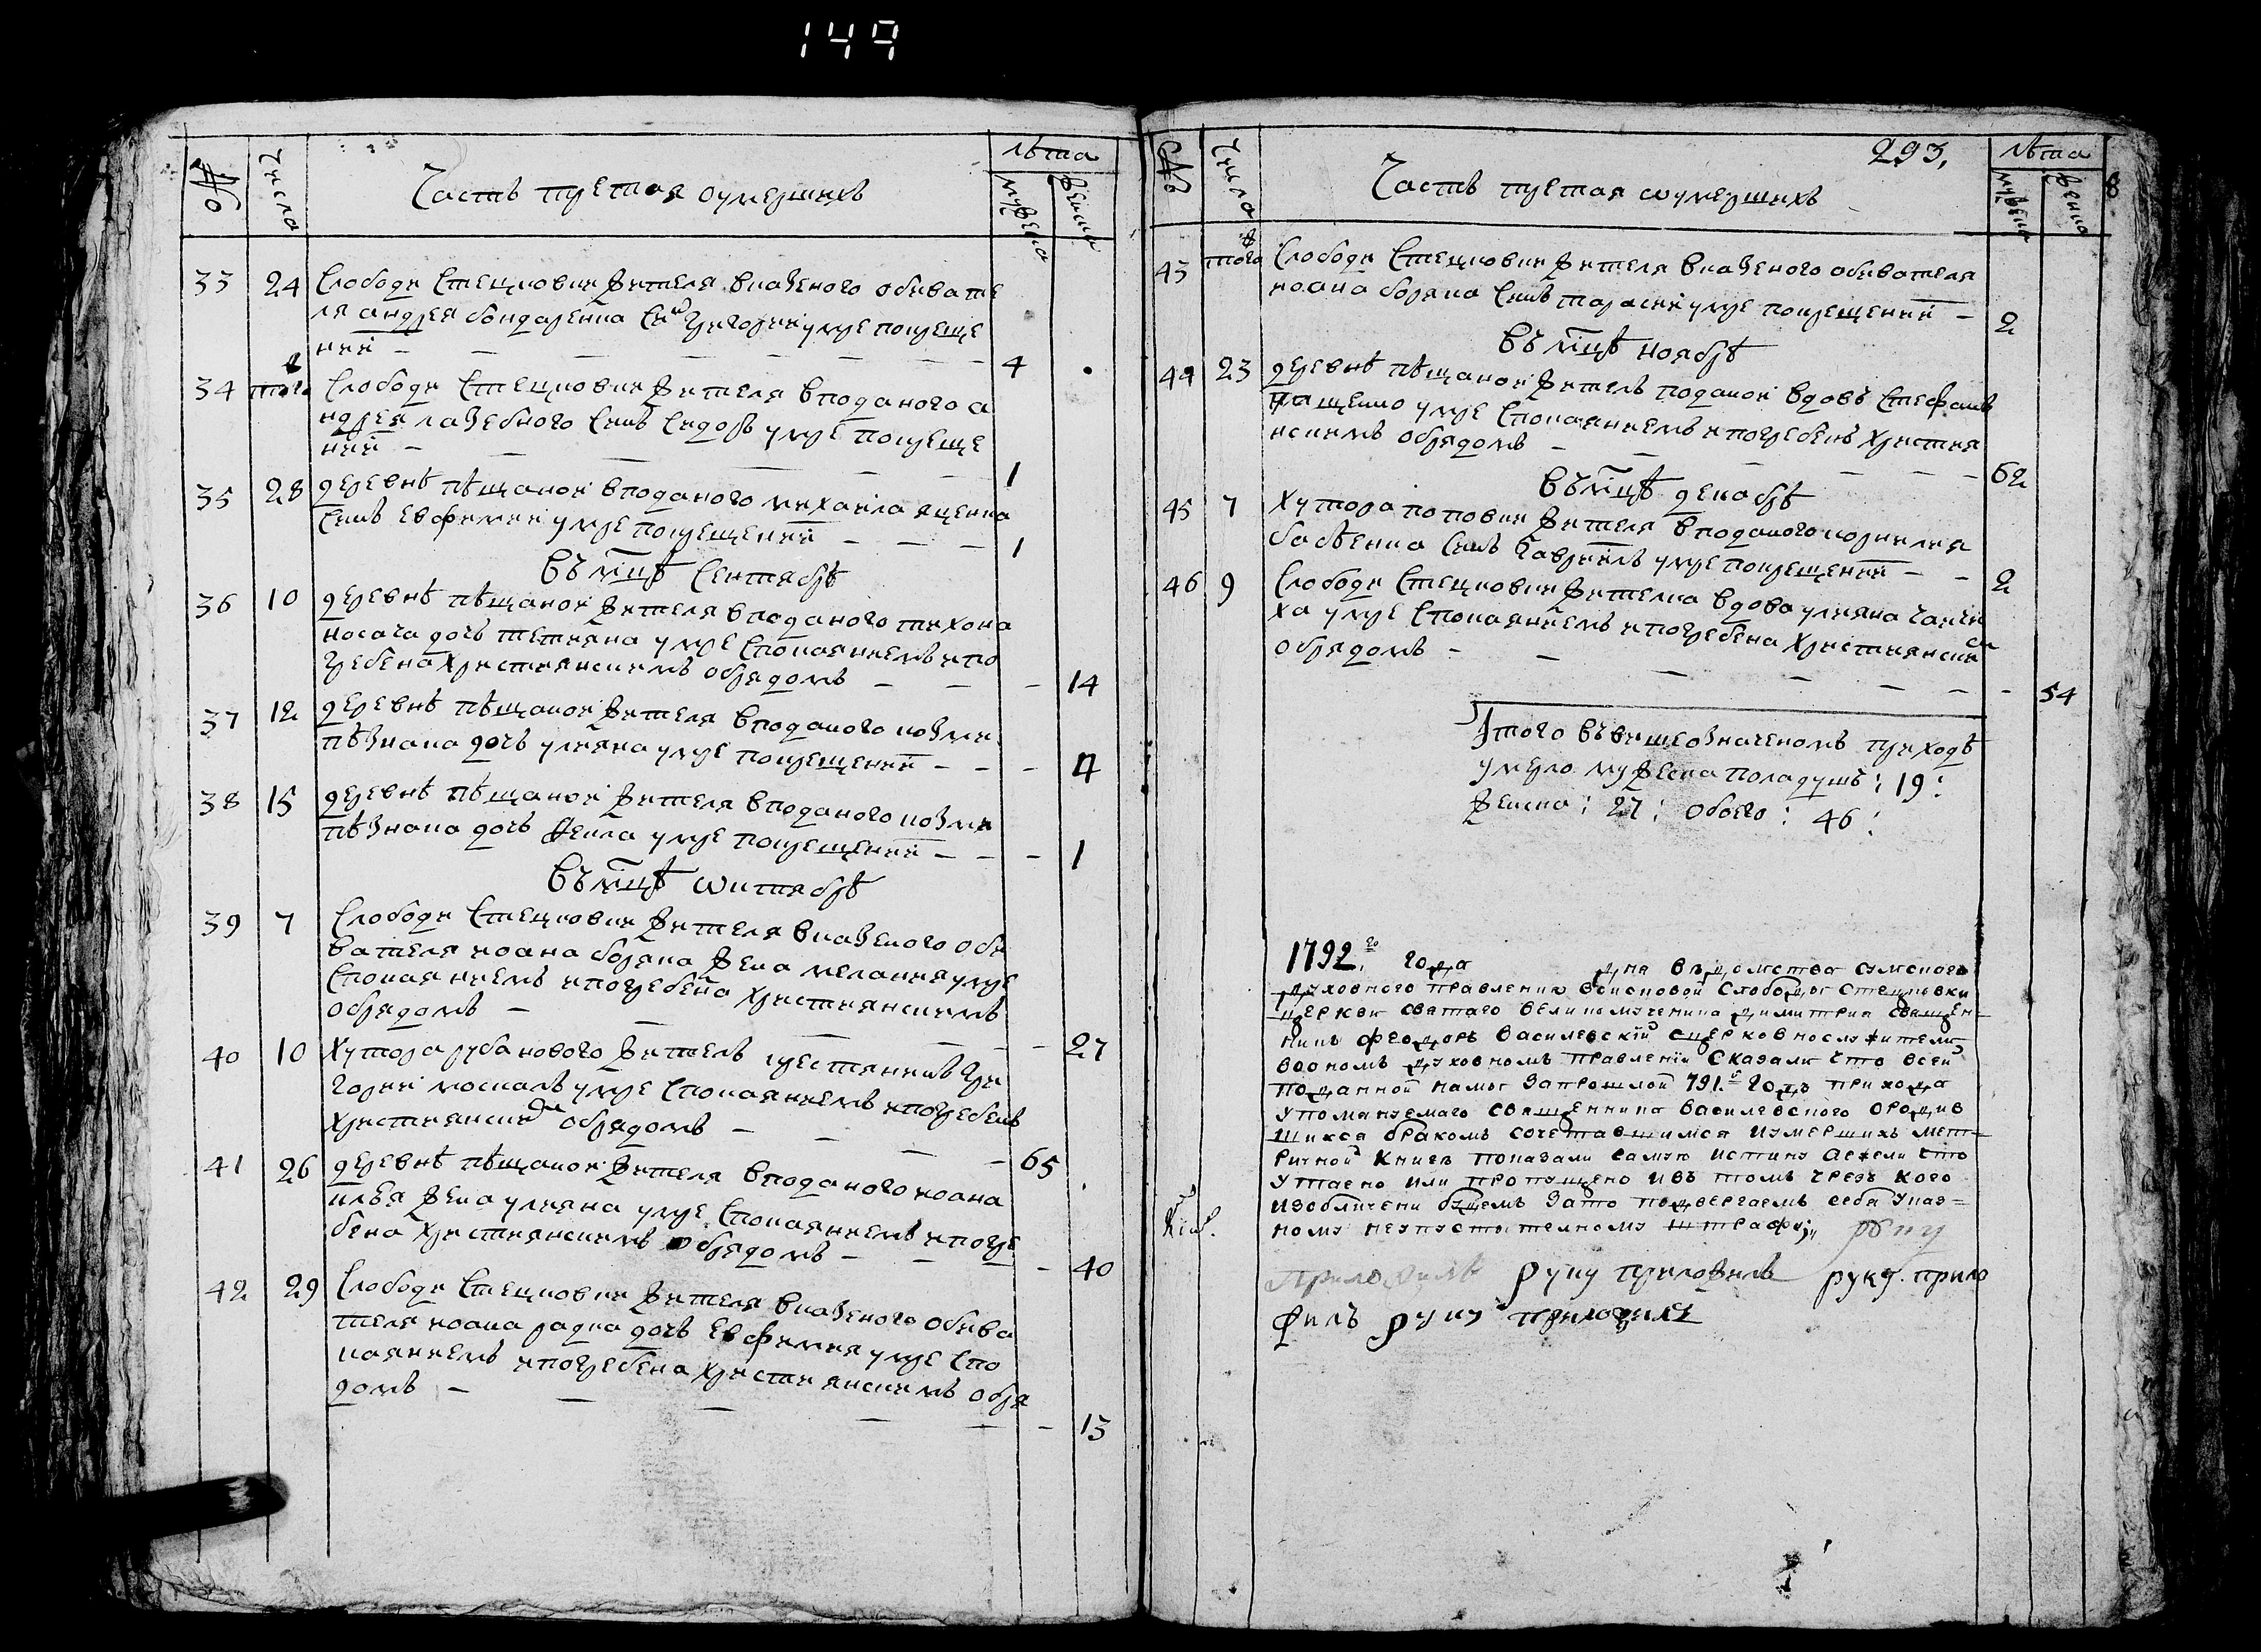 149
№
числа
Часть третая оумершихъ
лѣта
мужеска
женска
33 24 Слободи Стецковки жителя вказеного обивате
ля андрея бондаренка Синъ Григорий умре покреще
ний — 4
34 тогож Слободи Стецковки жителя вподаного а
ндрея лазебного Синъ Сидоръ умре покреще
ний — 1
35 28 деревнѣ пѣщаной вподаного михаила яценка
Синъ Евфимий умре покрещений — 1
Въ мцѣ Сентябрѣ
36 10 деревнѣ пѣщаной жителя вподаного тихона
носача дочъ тетияна умре Спокаяниемъ ипо
гребена християнскимъ обрядомъ — 14
37 12 деревнѣ пѣщаной жителя вподаного козми
пѣзнака дочъ улияна умре покрещений — 4
38 15 деревнѣ пѣщаной жителя вподаного козми
пѣзнака дочъ Фекла умре покрещений — 1
Въ мцѣ октябрѣ
39 7 Слободи Стецковки жителя вказеного оби
вателя иоана боряка жена мелания умре
Спокаяниемъ ипогребена християнскимъ
обрядомъ — 27
40 10 Хутора рубанового жителъ крестянинъ Гри
горий москалъ умре Спокаяниемъ ипогребенъ
християнскимъ обрядомъ — 65
41 26 деревнѣ пѣщаной жителя вподаного иоана
жена улияна умре Спокаяниемъ ипогре
бена християнскимъ обрядомъ — 40
42 29 Слободи Стецковки жителя вказеного обива
теля иоана радка дочъ Евфимия умре Спо
каяниемъ ипогребена християнскимъ обря
домъ — 13
293,
№
числа
Часть третая оумершихъ
лѣта
мужеска
женска
8
43 тогож Слободи Стецковки жителя вказеного обивателя
иоана боряка Синъ тарасий умре покрещений — 2
Въ мцѣ ноябрѣ
44 23 деревнѣ пѣщаной жителъ поданой вдовъ Стефанъ
умре Спокаяниемъ ипогребенъ христия
нскимъ обрядомъ — 62
Въ мцѣ декабрѣ
45 7 Хутора поповки жителя вподаного корнилия
Синъ Гавриилъ умре покрещений — 2
46 9 Слободи Стецковки жителка вдова улияна
ха умре Спокаянийемъ ипогребена християнским
обрядомъ — 54
Итого въвишеозначеномъ приходѣ
умерло мужеска пола душъ: 19:
женска: 27: обоего: 46:
1792.го года дня вѣдомства сумского
духовного правления воисковой слободы стецковки
церкви святаго великомученика димитрия священ-
никъ феодоръ василевскій сцерковнослужители
воономъ духовномъ правленіи сказали что всей
поданной намы запрошлой 791.й годъ прихода
упоминуемаго священника василевского ородив
шихся бракомъ сочетавшимся измершихъ мет-
ричной книгѣ показали самую истину аежели что
утаено или пропущено ивъ томъ чрезъ кого
изобличени будемъ зато подвергаемъ себя указ-
ному неупустителному штрафу; руку
приложилъ руку приложилъ руку прило
жилъ руку приложилъ